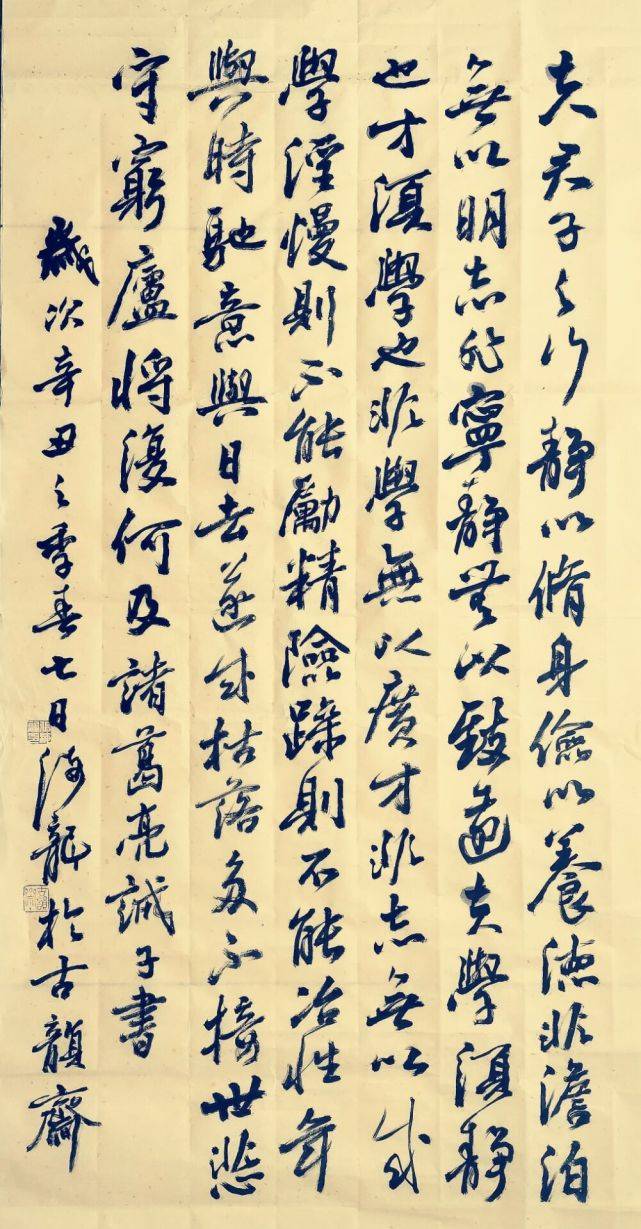 夫君子之行靜以脩身儉以養德非澹泊
無以明志非寧靜無以致遠夫學須靜
也才須學也非學無以廣才非志無以成
學淫慢則不能勵精險躁則不能冶性年
與時馳意與日去遂成枯落多不接世悲
守窮廬將復何及諸葛亮誡子書
歲次辛丑之季春七日海龍於古韻齋